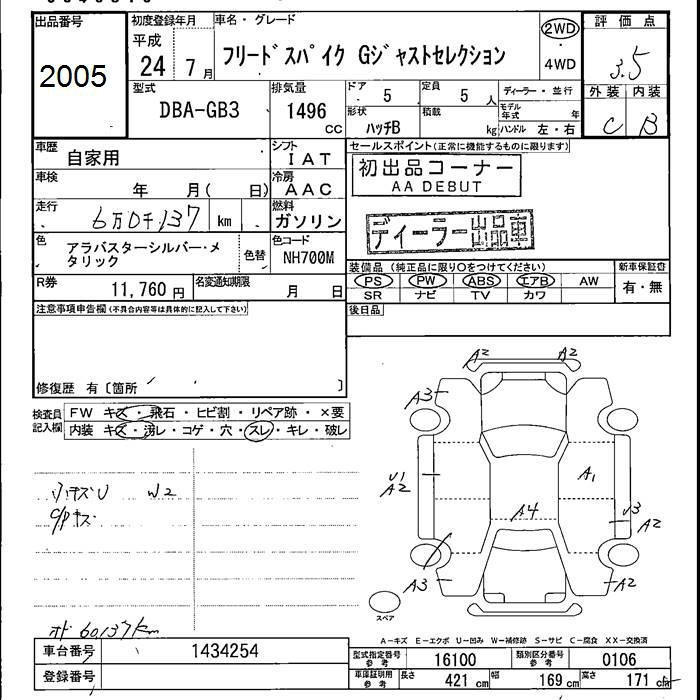 出品番号
2005
初度登録年月
平成
24 7月
車名・グレード
フリードスパイク Gジャストセレクション
2WD
・
4WD
評価点
3.5
外装 内装
C B
型式
DBA-GB3
排気量
1496
CC
ドア
5
定員
5 人
形状
ハッチB
積載
kg
ディーラー・並行
モデル
年式 年
ハンドル 左・右
車歴
自家用
シフト
IAT
車検
年 月( 日)
冷房
AAC
走行
6万0千137 km
燃料
ガソリン
色
アラバスターシルバー・メ
タリック
色替
色コード
NH700M
R券
11,760 円
名変通知期限
月 日
セールスポイント(正常に機能するものに限ります)
初出品コーナー
AA DEBUT
ディーラー出品車
装備品(純正品に限り○をつけてください)
新車保証書
PS PW ABS エアB AW
有・無
SR ナビ TV カワ
後日品
注意事項申告欄(不具合内容等は具体的に記入して下さい)
修復歴 有〔箇所 〕
検査員
記入欄
FW キズ・飛石・ヒビ割・リペア跡・×要
内装 キズ・汚レ・コゲ・穴・スレ・キレ・破レ
W2
C/Pキズ
オド 60137km
A2 A2
A3
U1
A2
A1
A4
U3
A2
A3
A2
スペア
A-キズ E-エクボ U-凹み W-補修跡 S-サビ C-腐食 XX-交換済
車台番号
1434254
登録番号
型式指定番号
参考
16100
類別区分番号
参考
0106
車庫証明用
参考
長さ
421 cm
幅
169 cm
高さ
171 cm